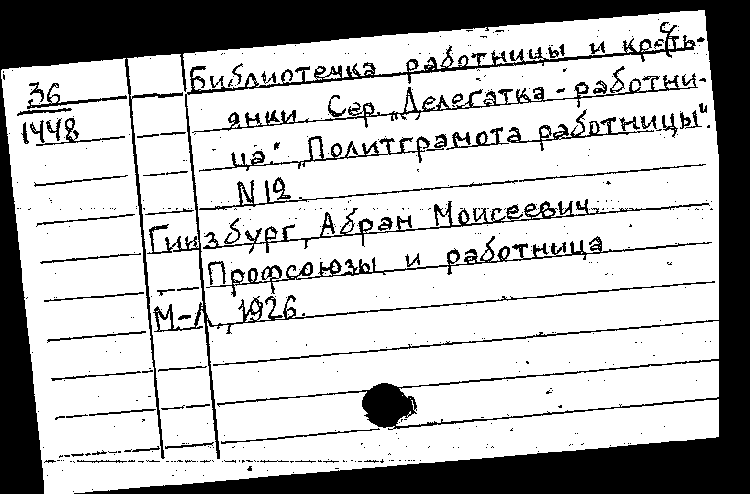 36
1448
Библиотечка работницы и кресть-
янки. Сер. „Делегатка - работни-
ца." „Политграмота работницы".
N 12.
Гинзбург, Абрам Моисеевич.
Профсоюзы и работница
М.-Л., 1926.